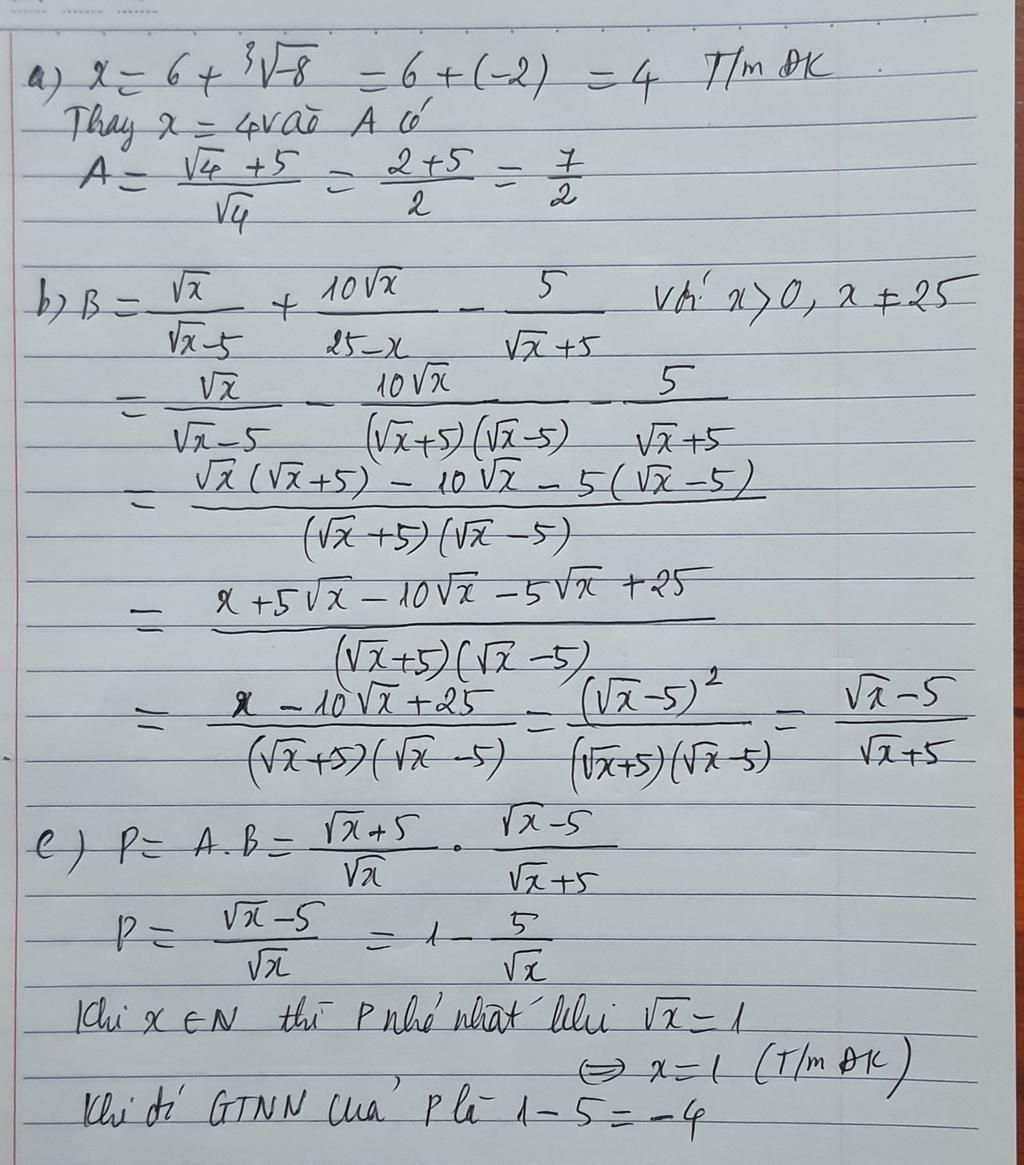 a) x = 6 + ∛-8 = 6 + (-2) = 4 T/m ĐK
Thay x = 4 vào A có
A = (√4 + 5)/√4 = (2+5)/2 = 7/2
b) B = √x/(√x-5) + 10√x/(25-x) - 5/(√x+5) với x>0, x ≠ 25
= √x/(√x-5) - 10√x/((√x+5)(√x-5)) - 5/(√x+5)
= (√x(√x+5) - 10√x - 5(√x-5))/((√x+5)(√x-5))
= (x+5√x-10√x-5√x+25)/((√x+5)(√x-5))
= (x-10√x+25)/((√x+5)(√x-5)) = (√x-5)²/((√x+5)(√x-5)) = (√x-5)/(√x+5)
c) P = A.B = (√x+5)/√x . (√x-5)/(√x+5)
P = (√x-5)/√x = 1 - 5/√x
Khi x ∈ N thì P nhỏ nhất khi √x = 1
⇔ x = 1 (T/m ĐK)
Khi đó GTNN của P là 1-5 = -4